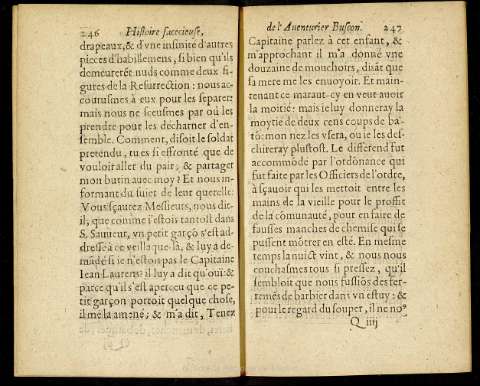 246 Histoire facecieuse,
drapeaux, & d'vne infinité d'autres
pieces d'habillemens, si bien qu'ils
demeurerẽt nuds comme deux fi-
gures de la Resurrection: nous ac-
courusmes à eux pour les separer:
mais nous ne sceusmes par où les
prendre pour les décharner d'en-
semble. Comment, disoit le soldat
pretendu, tu es si effronté que de
vouloir aller du pair, & partager
mon butin auec moy? Et nous in-
formant du sujet de leur querelle:
Vous sçaurez Messieurs, nous dit-
il, que comme i'estois tantost dans
S. Sauueur, vn petit garçõ s'est ad-
dressé à ce veillaque-là, & luy a de-
mãdé si ie n'estois pas le Capitaine
Iean Laurens? il luy a dit qu'oüi: &
parce qu'il s'est aperceu que ce pe-
tit garçon portoit quelque chose,
il me l'a amené; & m'a dit, Tenez
de l'Auenturier Buscon. 247
Capitaine parlez à cet enfant, &
m'approchant il m'a donné vne
douzaine de mouchoirs, disãt que
sa mere me les enuoyoit. Et main-
tenant ce maraut-cy en veut auoir
la moitié: mais ie luy donneray la
moytie de deux cens coups de ba-
tõ: mon nez les vsera, ou ie les des-
chireray plustost. Le differend fut
accommodé par l'ordõnance qui
fut faite par les Officiers de l'ordre,
à sçauoir qui les mettoit entre les
mains de la vieille pour le proffit
de la cõmunauté, pour en faire de
fausses manches de chemise qui se
pussent mõtrer en esté. En mesme
temps la nuict vint, & nous nous
couchasmes tous si pressez, qu'il
sembloit que nous fussiõs des fer-
remẽs de barbier dans vn estuy: &
pour le regard du souper, il ne no⁹
Q iiij